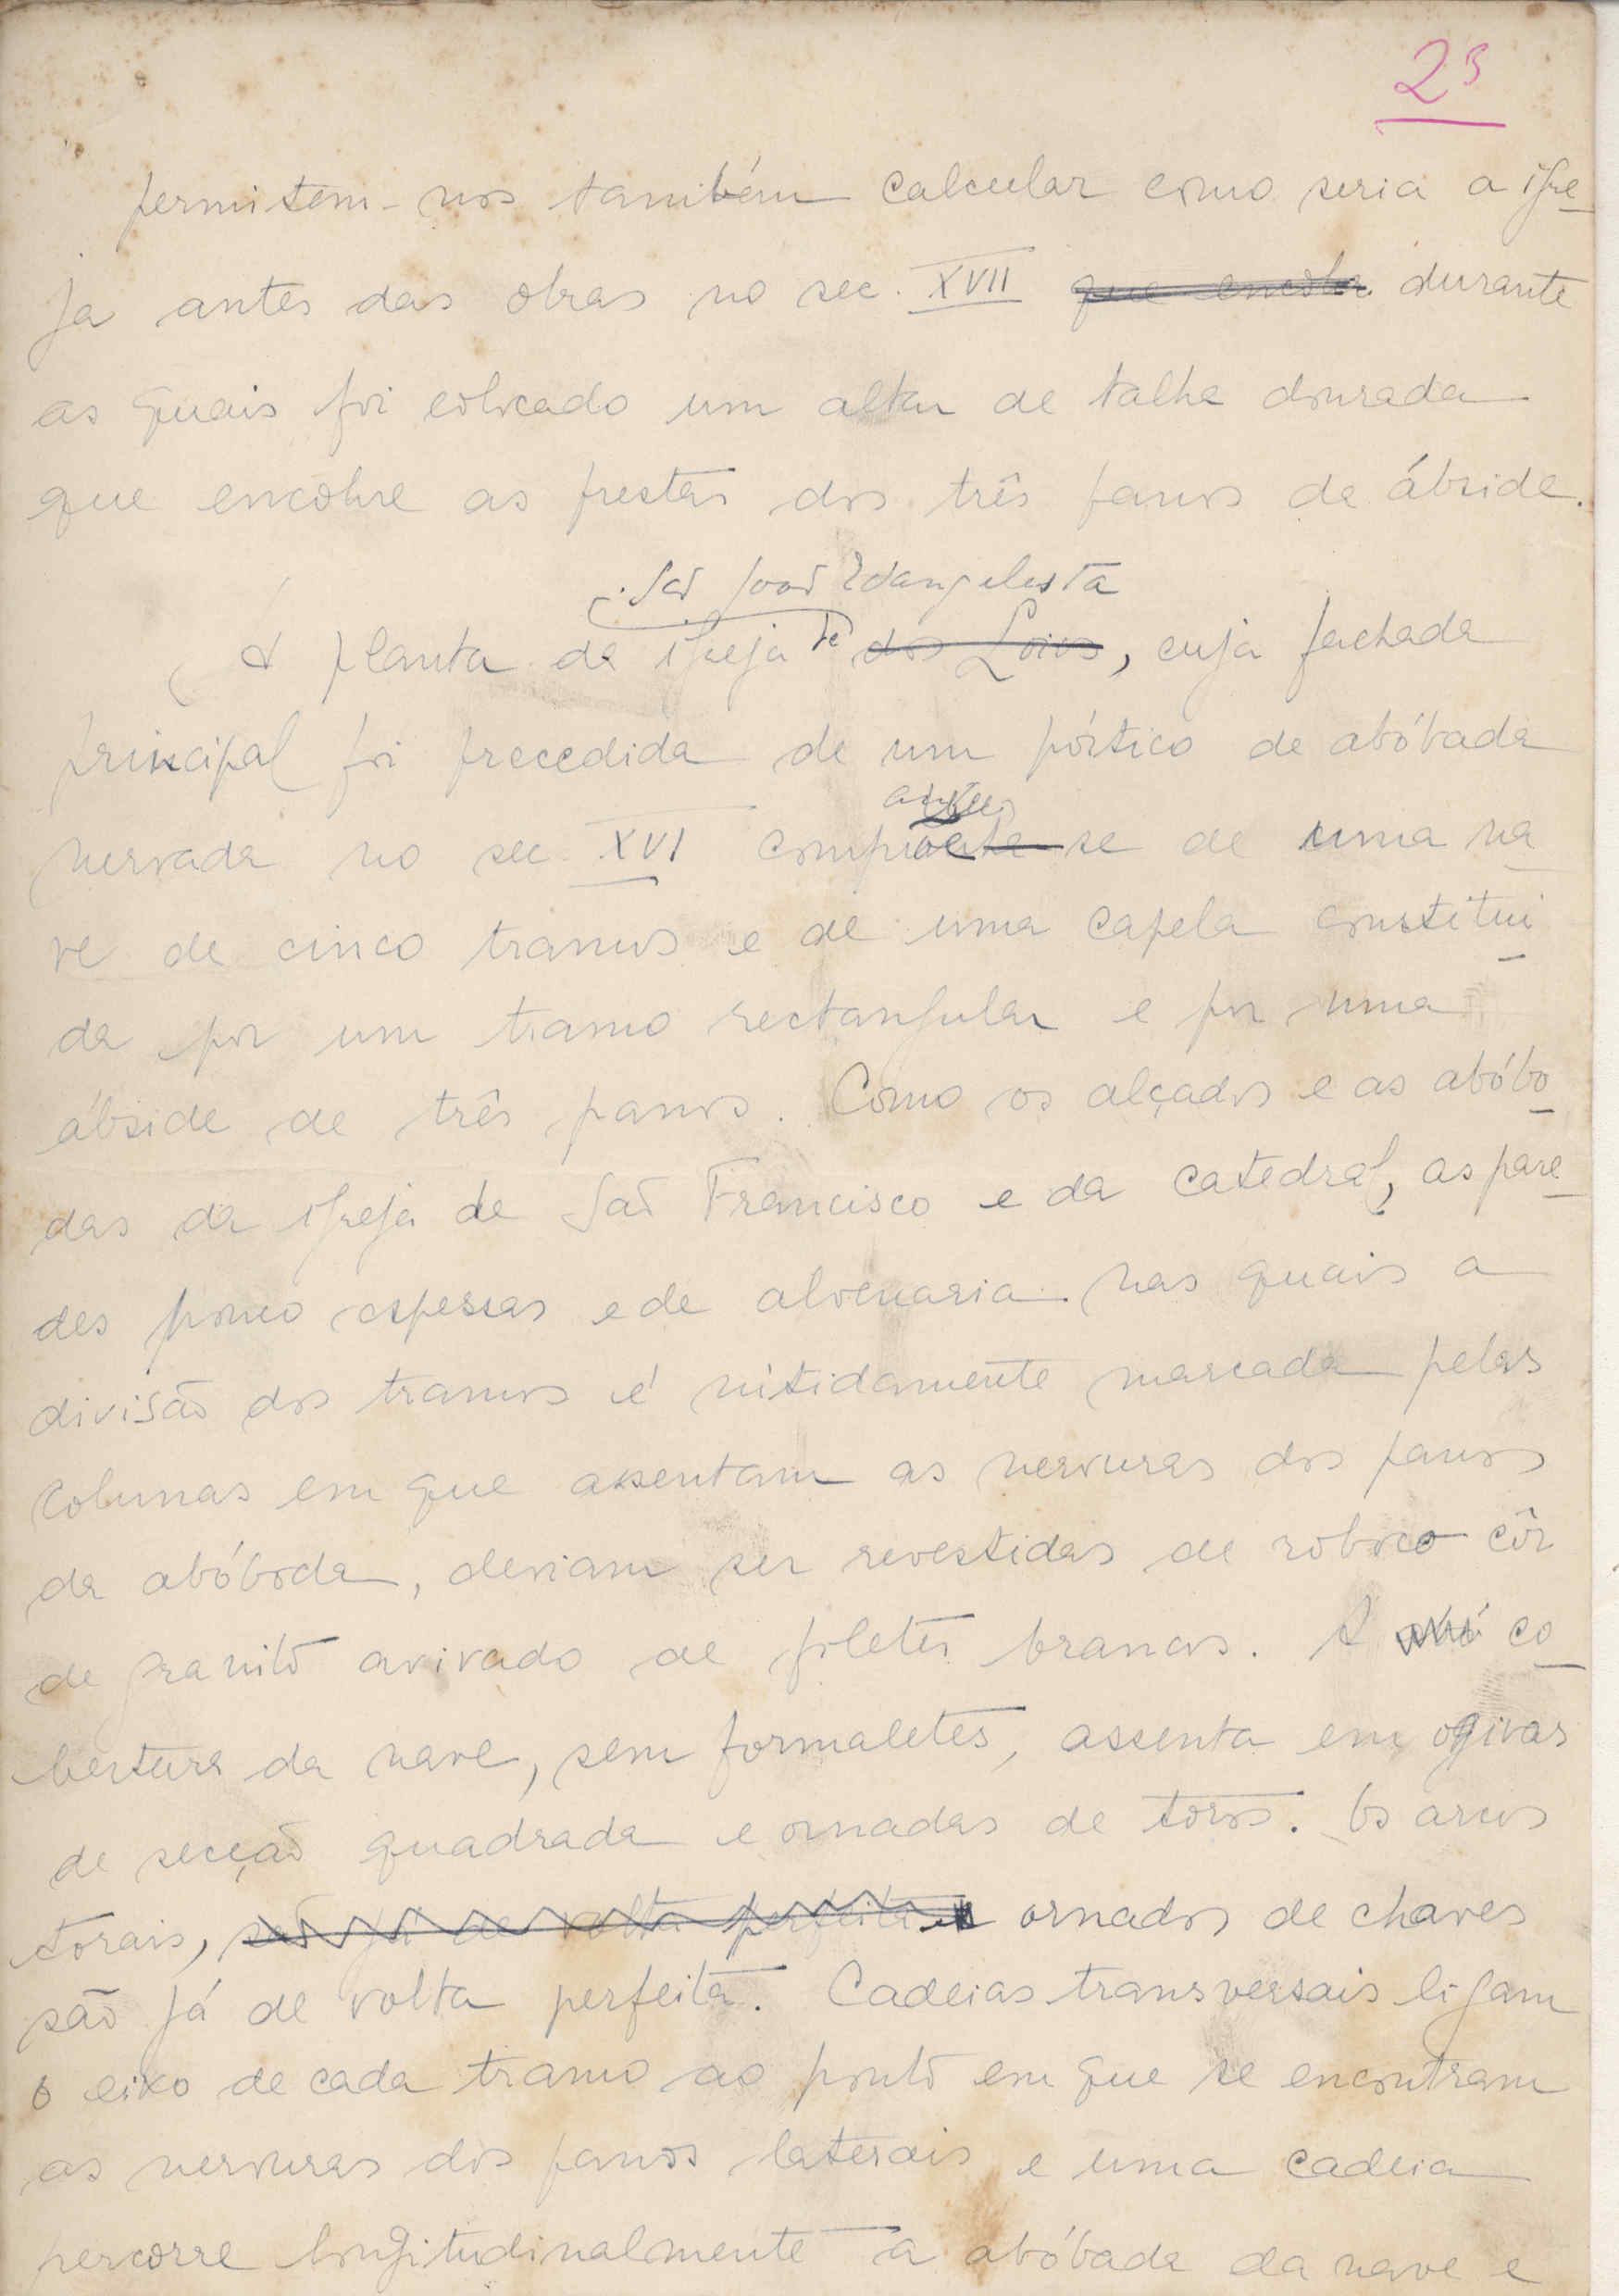 23
permitem-nos também calcular como seria a igre-
ja antes das obras no sec. XVII que encobre durante
as quais foi colocado um altar de talha dourada
que encobre as frestas dos três panos da ábside.
São João Evangelista
A planta da igreja de dos Loios, cuja fachada
principal foi precedida de um pórtico de abóbada
nervada no sec. XVI se de uma na-
ve de cinco tramos e de uma capela constitui-
da por um tramo rectangular e por uma
ábside de três panos. Como os alçados e as abóbo-
das da igreja de São Francisco e da Catedral, as pare-
des pouco espessas e de alvenaria nas quais a
divisão dos tramos é nitidamente marcada pelas
colunas em que assentam as nervuras dos panos
da abóboda, deviam ser revestidas de roboco côr
de granito avivado de filetes brancos. A co-
bertura da nave, sem formaletes, assenta em ogivas
de secção quadrada e ornadas de toros. Os arcos
torais, são já de volta perfeita ornados de chaves
são já de volta perfeita. Cadeias transversais ligam
o eixo de cada tramo ao ponto em que se encontram
as nervuras dos panos laterais e uma cadeia
percorre longitudinalmente a abóbada da nave e